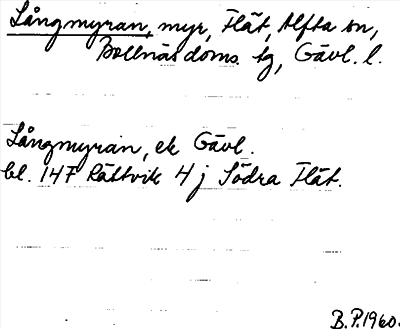 Långmyran, myr, Flät, Alfta sn,
Bollnäs doms. tg, Gävl. l.
Långmyran, ek Gävl.
bl. 147 Rättvik 4 j Södra Flät.
B.P. 1960.